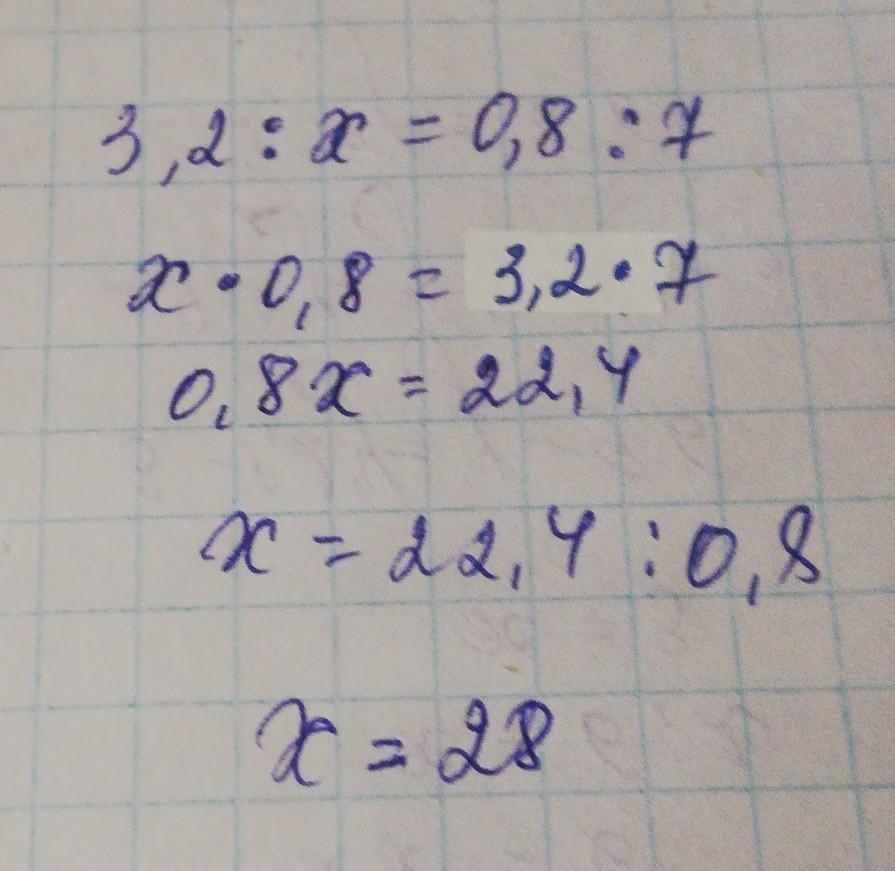 3,2 : x = 0,8 : 7
x · 0,8 = 3,2 · 7
0,8x = 22,4
x = 22,4 : 0,8
x = 28